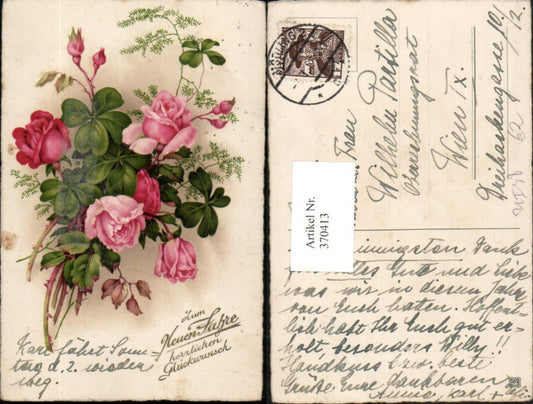 Zum
Neuen Jahre
herzlichen
Glückwunsch
Karl fährt Sonn-
tag d. 2. wieder
weg.
Frau
Wilhelm
Wien IX.
Dreihackengasse 10/
12.
Artikel Nr.
370413
innigsten Dank
alles Gute und Liebe
was wir in diesem Jahre
von Euch haben. Hoffent-
lich habt Ihr Euch gut er-
holt, besonders Willy!!
Handkuss bzw. beste
Grüße Eure dankbaren
Anna, Karl +